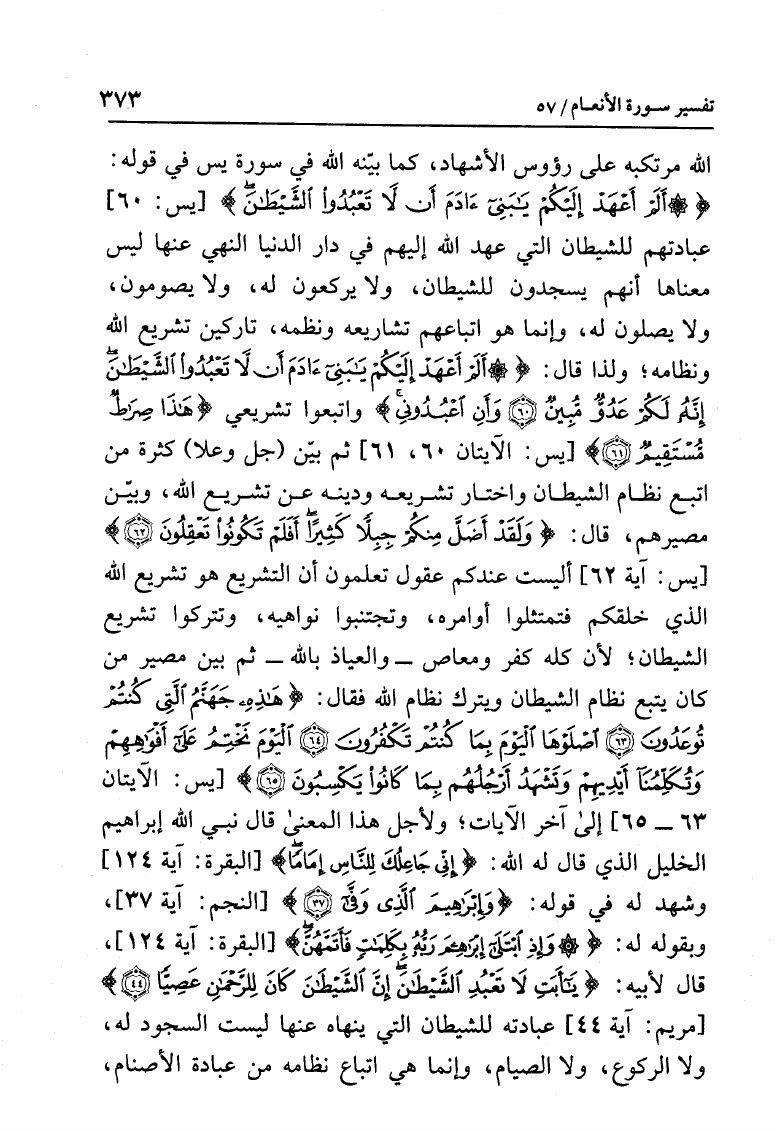 تفسير سورة الأنعام/ ٥٧ ٣٧٣
الله مرتكبه على رؤوس الأشهاد، كما بيّنه الله في سورة يس في قوله:
﴿ ۞ أَلَمْ أَعْهَدْ إِلَيْكُمْ يَـٰبَنِىٓ ءَادَمَ أَن لَّا تَعْبُدُوا۟ ٱلشَّيْطَـٰنَۖ ﴾ [يس: ٦٠]
عبادتهم للشيطان التي عهد الله إليهم في دار الدنيا النهي عنها ليس
معناها أنهم يسجدون للشيطان، ولا يركعون له، ولا يصومون،
ولا يصلون له، وإنما هو اتباعهم تشاريعه ونظمه، تاركين تشريع الله
ونظامه؛ ولذا قال: ﴿ ۞ أَلَمْ أَعْهَدْ إِلَيْكُمْ يَـٰبَنِىٓ ءَادَمَ أَن لَّا تَعْبُدُوا۟ ٱلشَّيْطَـٰنَۖ
إِنَّهُۥ لَكُمْ عَدُوٌّ مُّبِينٌ ﴿٦٠﴾ وَأَنِ ٱعْبُدُونِىۚ ﴾ واتبعوا تشريعي ﴿هَـٰذَا صِرَٰطٌ
مُّسْتَقِيمٌ ﴿٦١﴾﴾ [يس: الآيتان ٦٠، ٦١] ثم بيّن (جل وعلا) كثرة من
اتبع نظام الشيطان واختار تشريعه ودينه عن تشريع الله، وبيّن
مصيرهم، قال: ﴿ وَلَقَدْ أَضَلَّ مِنكُمْ جِبِلًّا كَثِيرًاۖ أَفَلَمْ تَكُونُوا۟ تَعْقِلُونَ ﴿٦٢﴾ ﴾
[يس: آية ٦٢] أليست عندكم عقول تعلمون أن التشريع هو تشريع الله
الذي خلقكم فتمتثلوا أوامره، وتجتنبوا نواهيه، وتتركوا تشريع
الشيطان؛ لأن كله كفر ومعاص ــ والعياذ بالله ــ ثم بين مصير من
كان يتبع نظام الشيطان ويترك نظام الله فقال: ﴿ هَـٰذِهِۦ جَهَنَّمُ ٱلَّتِى كُنتُمْ
تُوعَدُونَ ﴿٦٣﴾ ٱصْلَوْهَا ٱلْيَوْمَ بِمَا كُنتُمْ تَكْفُرُونَ ﴿٦٤﴾ ٱلْيَوْمَ نَخْتِمُ عَلَىٰٓ أَفْوَٰهِهِمْ
وَتُكَلِّمُنَآ أَيْدِيهِمْ وَتَشْهَدُ أَرْجُلُهُم بِمَا كَانُوا۟ يَكْسِبُونَ ﴿٦٥﴾ ﴾ [يس: الآيتان
٦٣ ــ ٦٥] إلىٰ آخر الآيات؛ ولأجل هذا المعنىٰ قال نبي الله إبراهيم
الخليل الذي قال له الله: ﴿ إِنِّى جَاعِلُكَ لِلنَّاسِ إِمَامًاۖ ﴾ [البقرة: آية ١٢٤]
وشهد له في قوله: ﴿ وَإِبْرَٰهِيمَ ٱلَّذِى وَفَّىٰٓ ﴿٣٧﴾ ﴾ [النجم: آية ٣٧]،
وبقوله له: ﴿ ۞ وَإِذِ ٱبْتَلَىٰٓ إِبْرَٰهِـۧمَ رَبُّهُۥ بِكَلِمَـٰتٍ فَأَتَمَّهُنَّۖ ﴾ [البقرة: آية ١٢٤]،
قال لأبيه: ﴿ يَـٰٓأَبَتِ لَا تَعْبُدِ ٱلشَّيْطَـٰنَۖ إِنَّ ٱلشَّيْطَـٰنَ كَانَ لِلرَّحْمَـٰنِ عَصِيًّا ﴿٤٤﴾ ﴾
[مريم: آية ٤٤] عبادته للشيطان التي ينهاه عنها ليست السجود له،
ولا الركوع، ولا الصيام، وإنما هي اتباع نظامه من عبادة الأصنام،